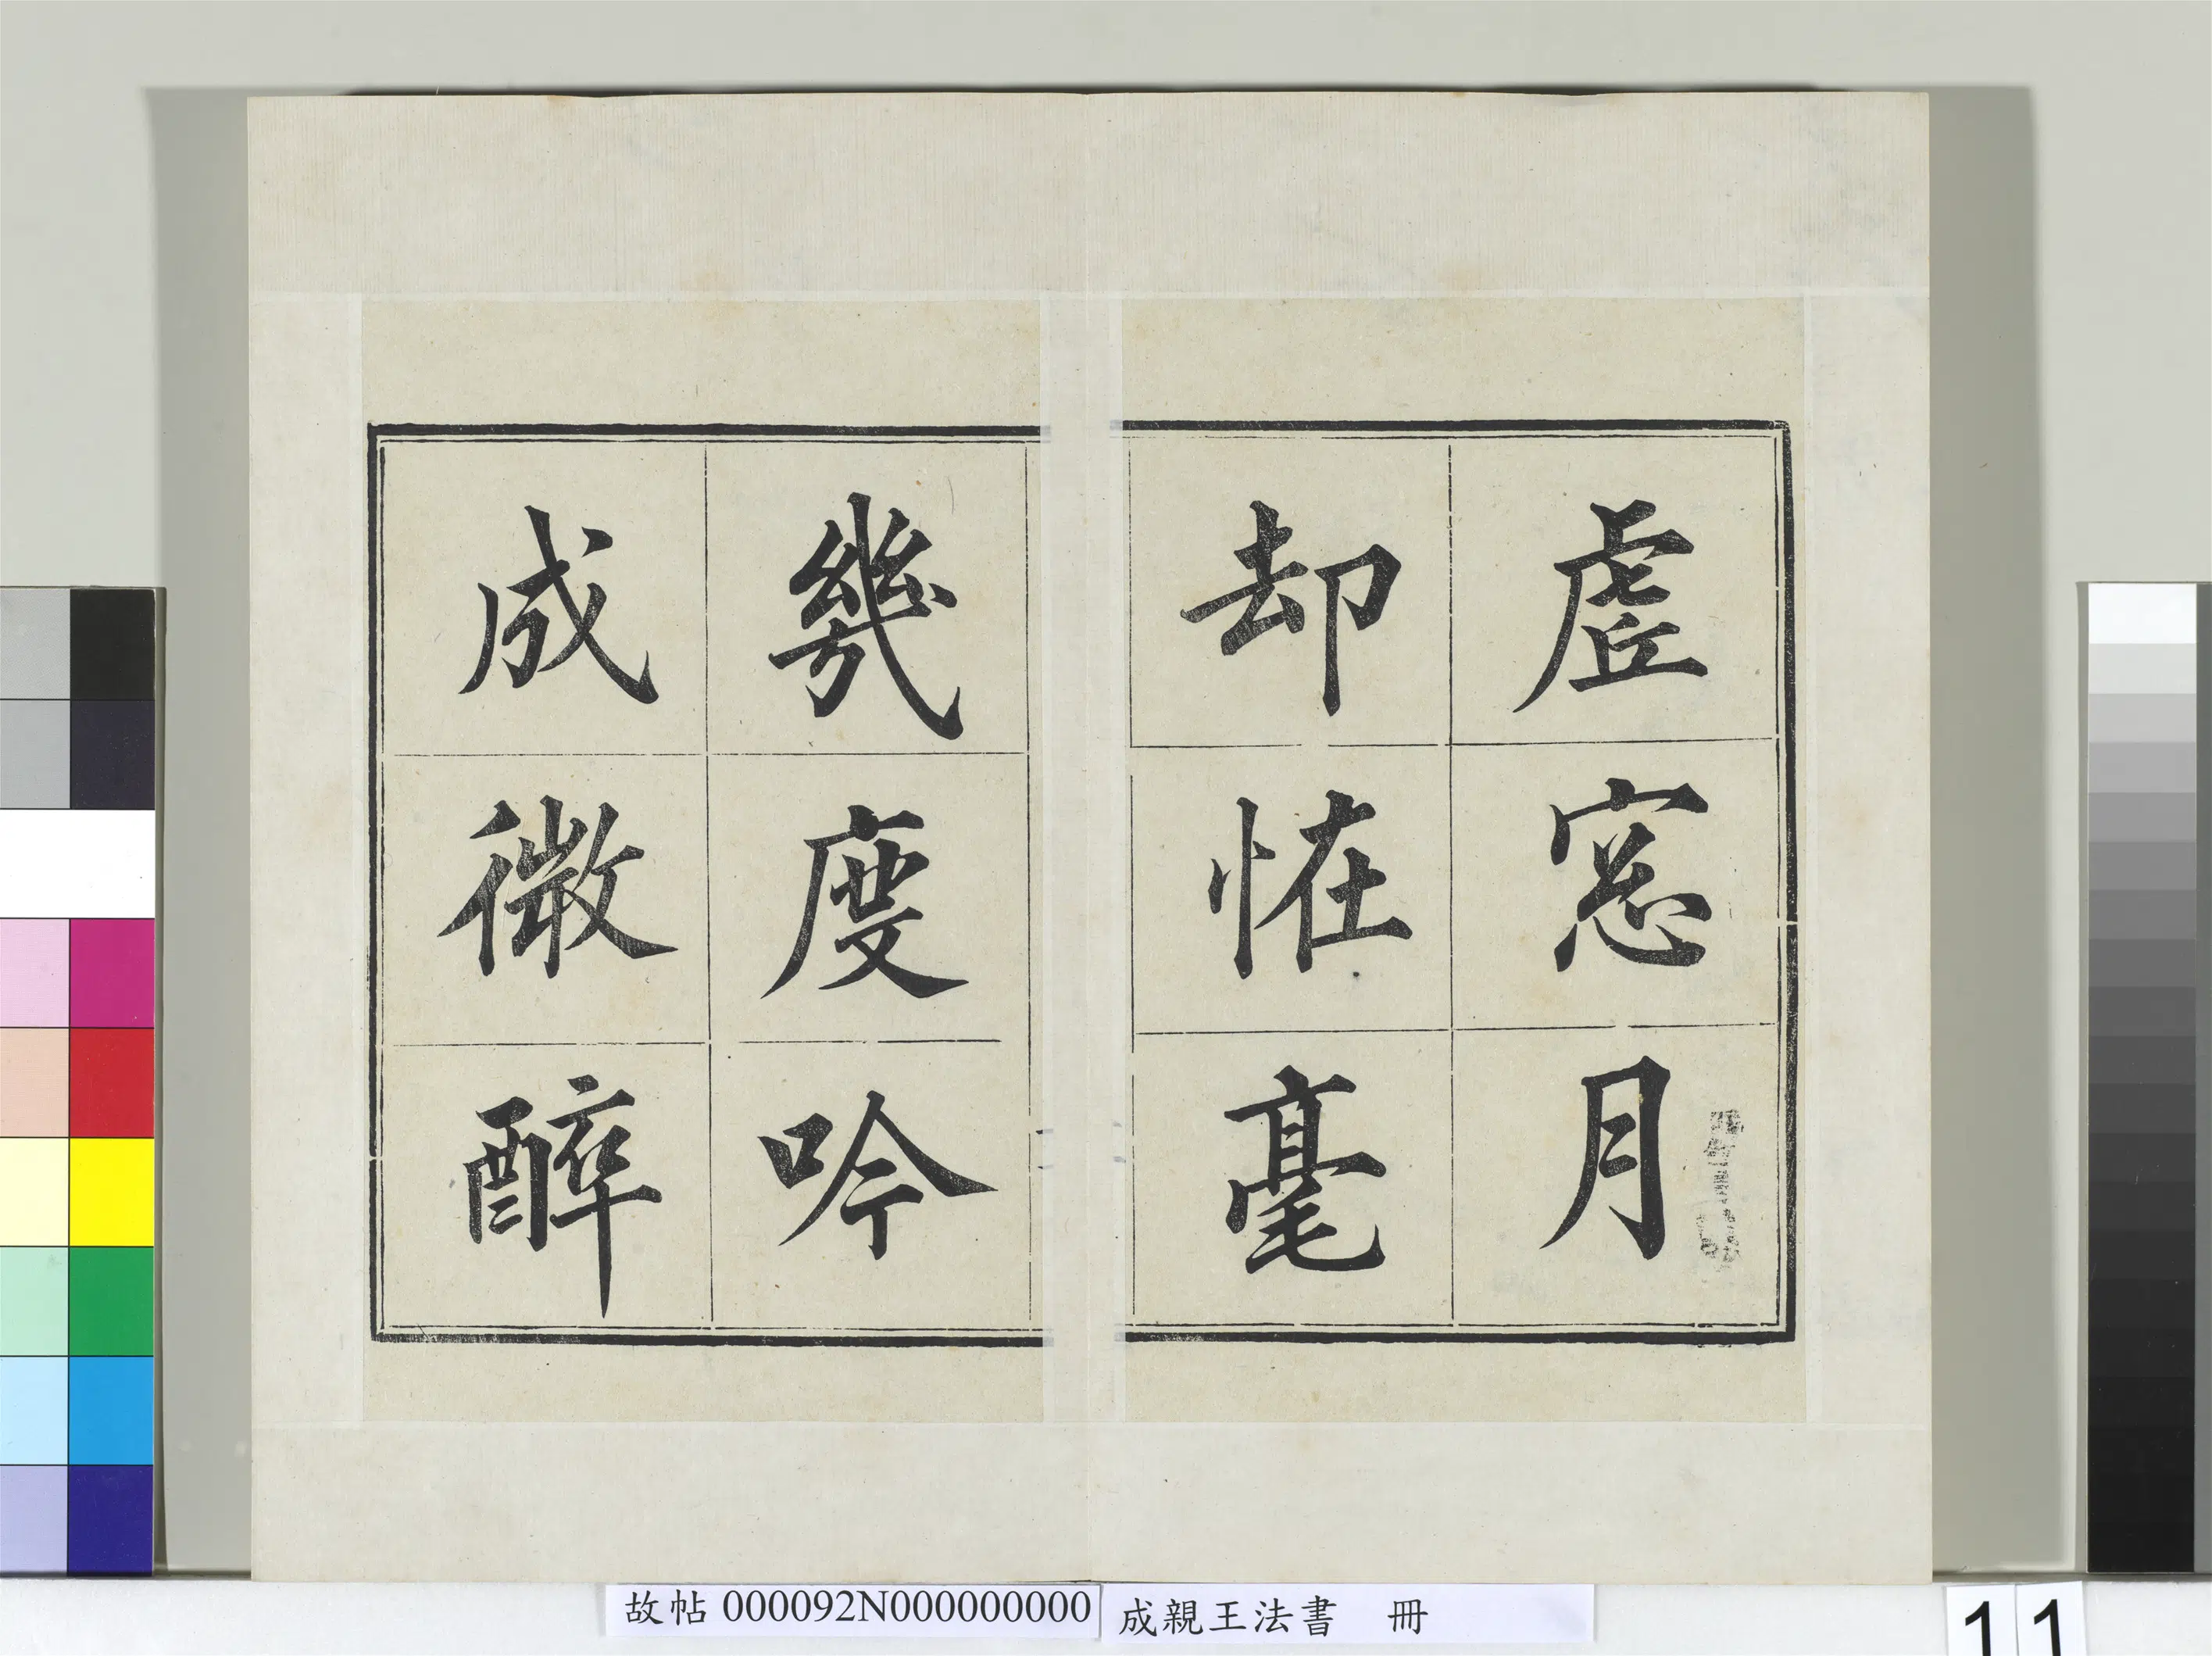 虛窓月
却恠毫
幾度吟
成微醉
故帖 000092N000000000
成親王法書 冊
11